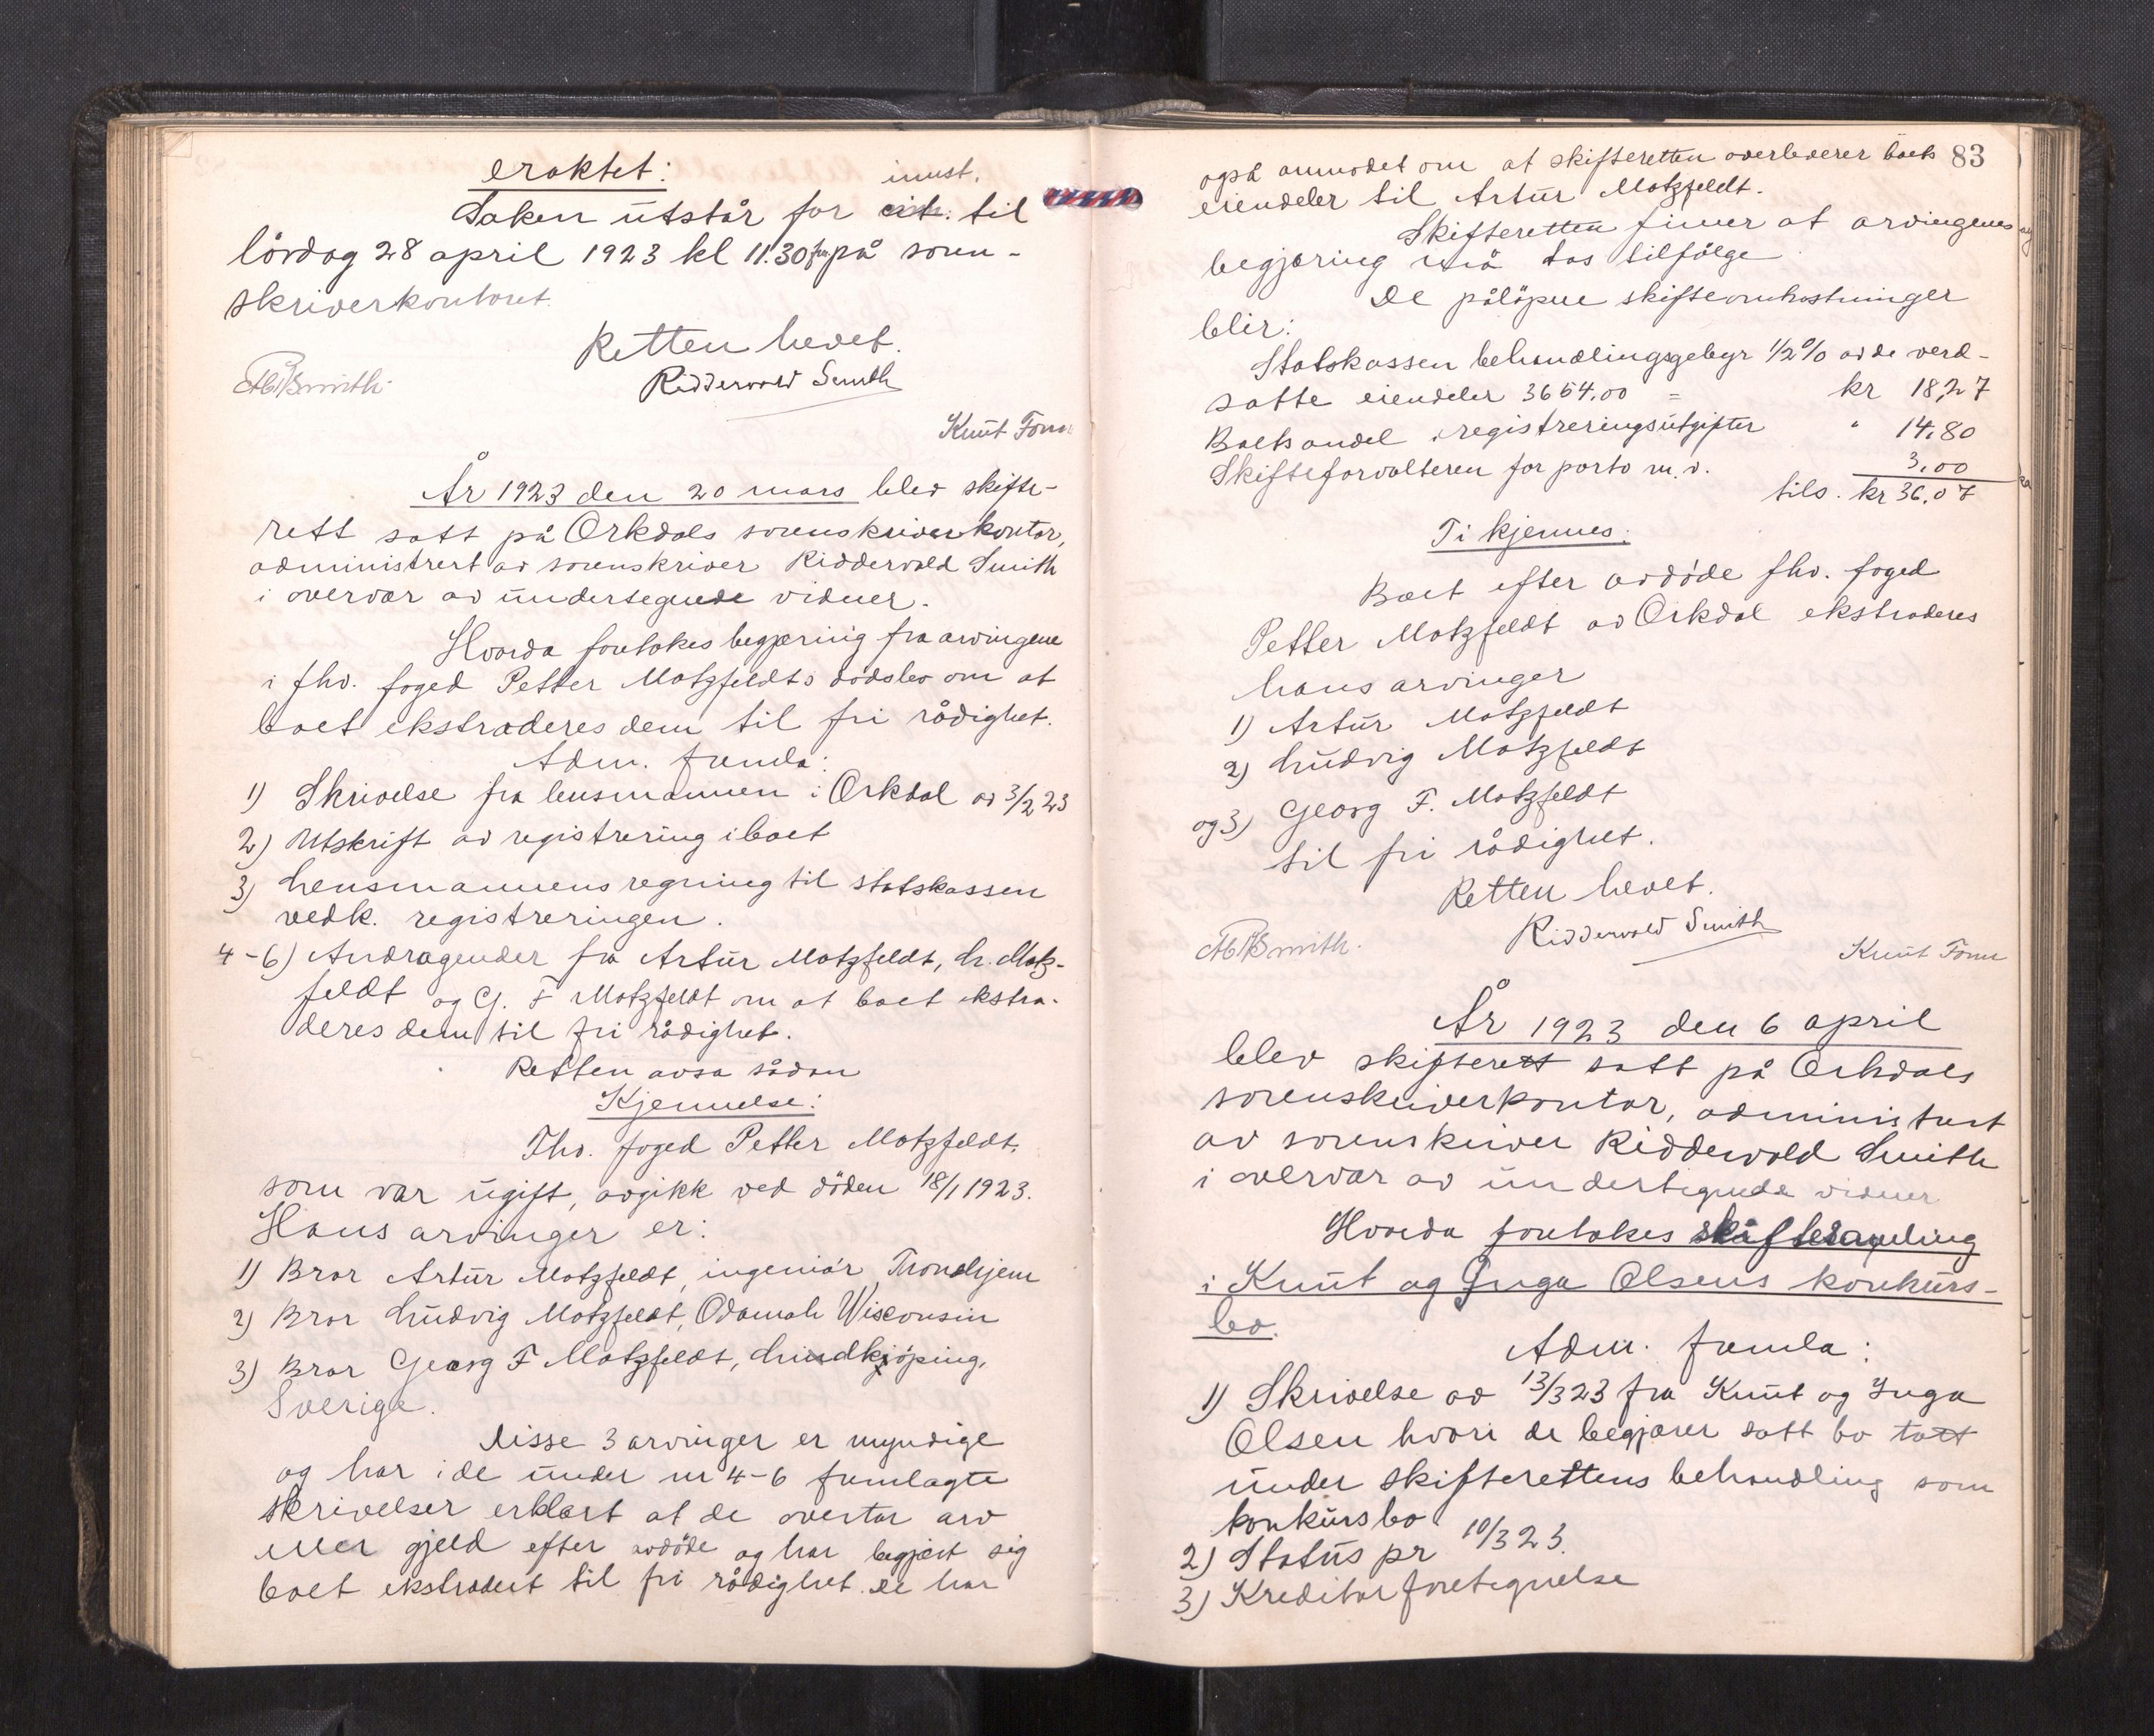 eraktet:
Saken utstår for innst. til
lördag 28 april 1923 kl 11.30 fm på soren-
skriverkontoret.
Retten hevet.
Ridderwold Smith
Smith.
Knut Fonn
År 1923 den 20 mars blev skifte-
rett satt på Orkdals sorenskriverkontor,
administrert av sorenskriver Ridderwold Smith
i overvær av undertegnede vidner.
Hvorda foretokes begjæring fra arvingene
i fhv. foged Petter Motzfeldts dödsbo om at
boet ekstraderes dem til fri rådighet.
Adm. framla:
1) Skrivelse fra lensmannen i Orkdal av 3/2 23
2) Utskrift av registrering i boet
3) Lensmannens regning til statskassen
vedk. registreringen.
4-6) Andragender fra Artur Motzfeldt, L. Motz-
feldt og G. F Motzfeldt om at boet ekstra-
deres dem til fri rådighet.
Retten avsa sådan
Kjennelse:
Fhv. foged Petter Motzfeldt,
som var ugift, avgikk ved döden 18/1 1923.
Hans arvinger er:
1) Bror Artur Motzfeldt, ingeniör, Trondhjem
2) Bror Ludvig Motzfeldt, Odanah Wisconsin
3) Bror Georg F Motzfeldt, Lindkjöping,
Sverige.
Disse 3 arvinger er myndige
og har i de under nr 4-6 fremlagte
skrivelser erklært at de overtar arv
eller gjeld efter avdöde og har begjært sig
boet ekstradert til fri rådighet. De har
83
også anmodet om at skifteretten overleverer boets
eiendeler til Artur Motzfeldt.
Skifteretten finner at arvingenes
begjæring må tas tilfölge
De pålöpne skifteomkostninger
blir:
Statskassen behandlingsgebyr 1/2% av de verd-
satte eiendeler 3654.00 = kr 18,27
Boets andel i registreringsutgifter " 14.80
Skifteforvalteren for porto m.v. 3,00
tils. kr 36,07
Ti kjennes:
Boet efter avdöde fhv. foged
Petter Motzfeldt av Orkdal ekstraderes
hans arvinger
1) Artur Motzfeldt
2) Ludvig Motzfeldt
og 3) Georg F. Motzfeldt
til fri rådighet.
Retten hevet.
Ridderwold Smith
Smith.
Knut Fonn
År 1923 den 6 april
blev skifterett satt på Orkdals
sorenskriverkontor, administrert
av sorenskriver Ridderwold Smith
i overvær av undertegnede vidner
Hvorda foretokes skiftesamling
i Knut og Inga Olsens konkurs-
bo.
Adm. framla:
1) Skrivelse av 13/3 23 fra Knut og Inga
Olsen hvori de begjærer satt bo tatt
under skifterettens behandling som
konkursbo.
2) Status pr 10/3 23.
3) Kreditorfortegnelse